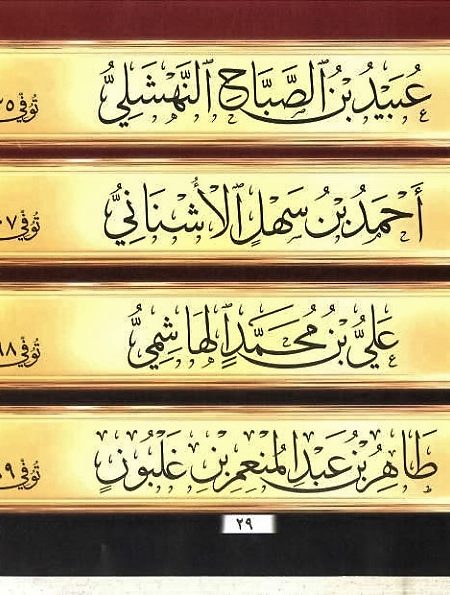 عُبَيْدُ بْنُ ٱلصَّبَّاحِ ٱلنَّهْشَلِيُّ تُوُفِّيَ
أَحْمَدُ بْنُ سَهْلٍ ٱلْأُشْنَانِيُّ تُوُفِّيَ
عَلِيُّ بْنُ مُحَمَّدٍ ٱلْهَاشِمِيُّ تُوُفِّيَ
طَاهِرُ بْنُ عَبْدِ ٱلْمُنْعِمِ بْنِ غَلْبُونٍ تُوُفِّيَ
٢٩